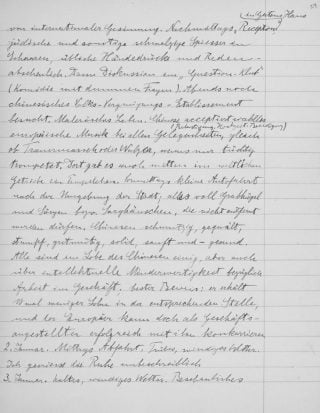 (in Gatons Haus
von internationaler Gesinnung. Nachmittags, Reception
jüdische und sonstige schmalzige Speisen in
Scharen, übliche Händedrücke und Reden-
abscheulich. Dann Diskussion im „Question-Klub"
(Komödie mit dummen Fragen). Abends noch
chinesisches Volks-Vergnügungs-Etablissement
besucht. Malerisches Leben. Chinese acceptiert wahllos
europäische Musik bei allen Gelegenheiten, gleich
ob Trauermarsch oder Walzer, wenns nur tüchtig
trompetet, Dort gab es auch mitten im weltlichen
Getriebe ein Tempelchen. Vormittags kleine Autofahrt
nach der Umgebung der Stadt, alles voll Grabhügel
und Särgen bezw. Sarghäuschen, die nicht entfernt
werden dürfen. Chinesen schmutzig, gequält,
stumpf, gutmütig, solid, sanft und – gesund.
Alle sind im Lobe des Chinesen einig, aber auch
über intellektuelle Minderwertigkeit bezüglich
Arbeit im Geschäft, bester Beweis: er erhält
10 mal weniger Lohn in der entsprechenden Stelle,
und der Europäer kann doch als Geschäfts-
angestellter erfolgreich mit ihm konkurrieren
2. Januar. Mittags Abfahrt. Trübes, windiges Wetter.
Ich geniesse die Ruhe unbeschreiblich
3. Januar. kaltes, windiges Wetter. Beschauliches